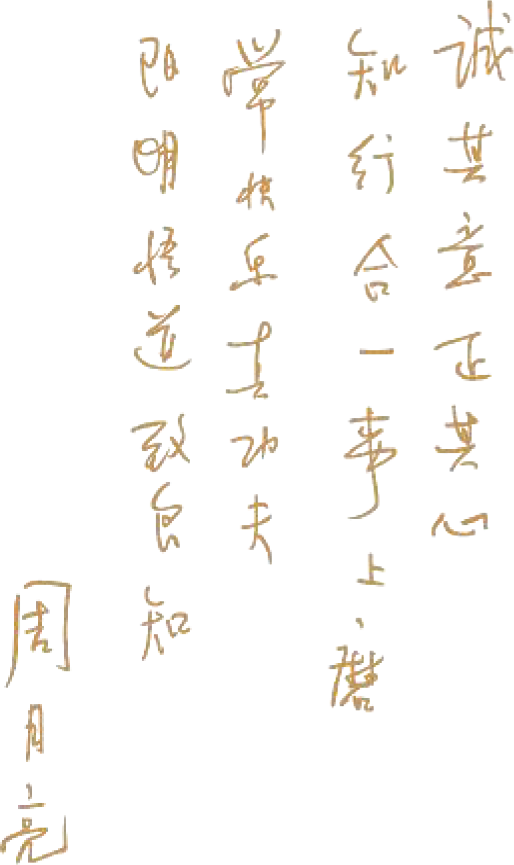 誠其意正其心
知行合一事上磨
常快乐真功夫
阳明悟道致良知
周月亮